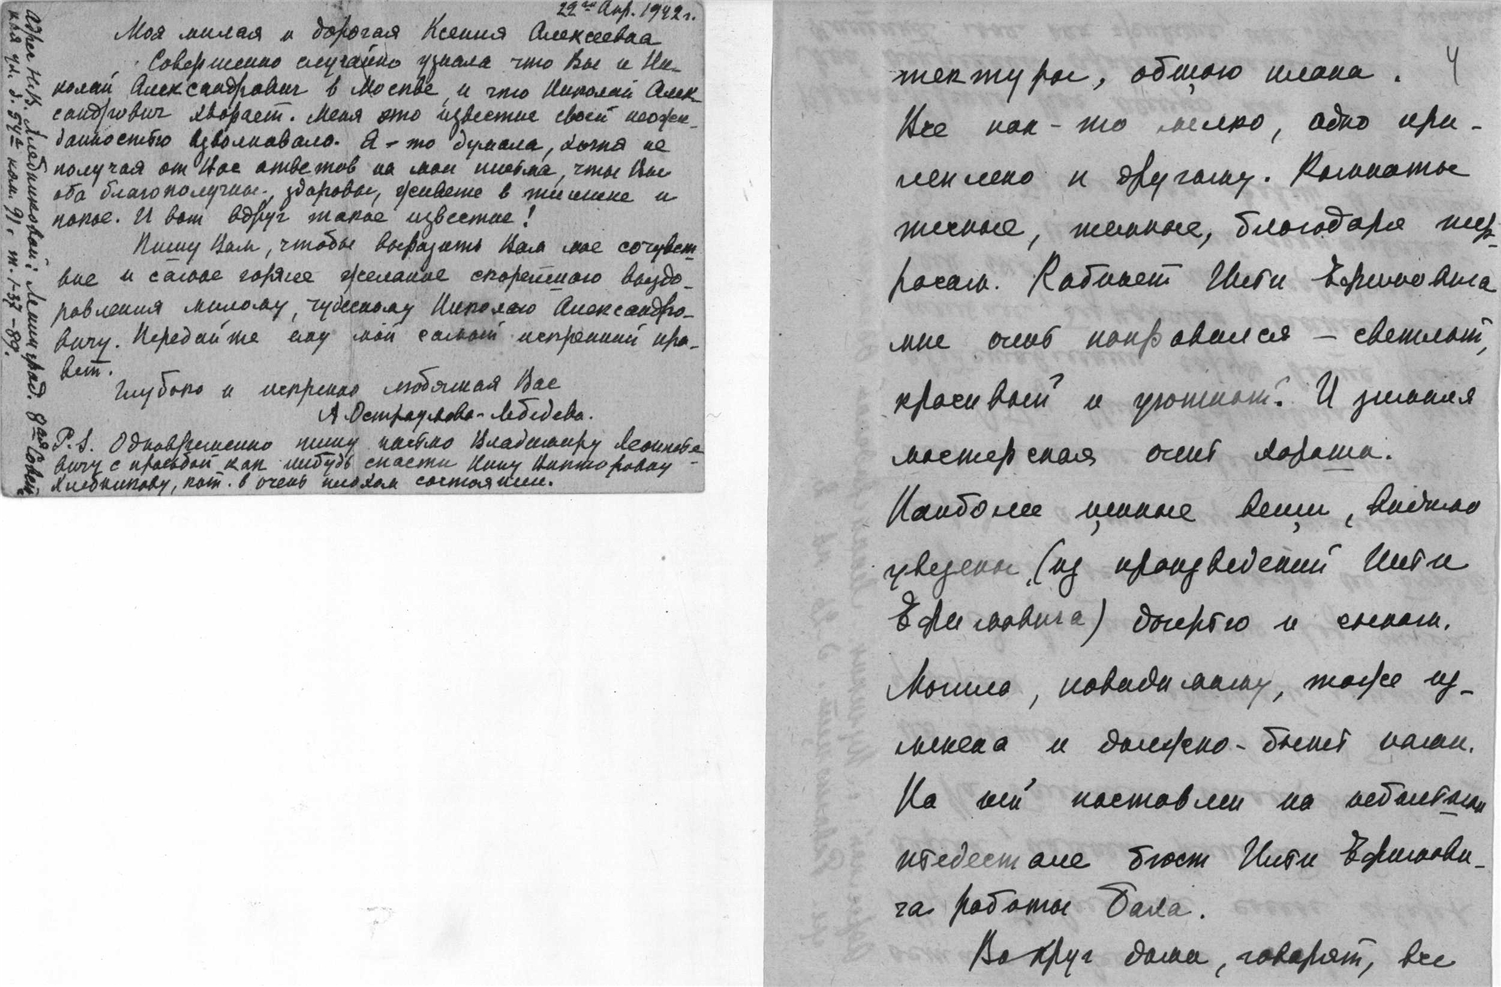 22го Апр. 1942 г.
Моя милая и дорогая Ксения Алексеевна
Совершенно случайно узнала что Вы и Ни-
колай Александрович в Москве и что Николай Алек-
сандрович хворает. Меня это известие своей неожи-
данностью взволновало. Я-то думала, хотя не
получая от Вас ответов на мои письма, что Вы
оба благополучны, здоровы, живете в тишине и
покое. И вот вдруг такое известие!
Пишу Вам, чтобы выразить Вам мое сочувст-
вие и самое горячее желание скорейшего выздо-
ровления милому, чудесному Николаю Александро-
вичу. Передайте ему мой самый искренний при-
вет.
Глубоко и искренно любящая Вас
А Остроумова-Лебедева.
P.S. Одновременно пишу письмо Владимиру Леонтье
вичу с просьбой как нибудь спасти Нину Викторовну
Хлебникову, кот. в очень плохом состоянии.
Адрес Н.В. Хлебниковой: Ленинград. 8ая Совет-
ская ул. д. 54 ком. 91. т. 1-37-89.
4
тектуры, общего плана.
Все как-то мелко, одно при-
леплено к другому. Комнаты
тесные, темные, благодаря тер-
расам. Кабинет Ильи Ефимовича
мне очень понравился – светлый,
красивый и уютный. И зимняя
мастерская очень хороша.
Наиболее ценные вещи, видимо
увезены (из произведений Ильи
Ефимовича) дочерью и сыном.
Могила, повидимому, тоже из-
менена и должно-быть нами.
На ней поставлен на небольшом
пьедестале бюст Ильи Ефимови-
ча работы Баха.
Вокруг дома, говорят, все